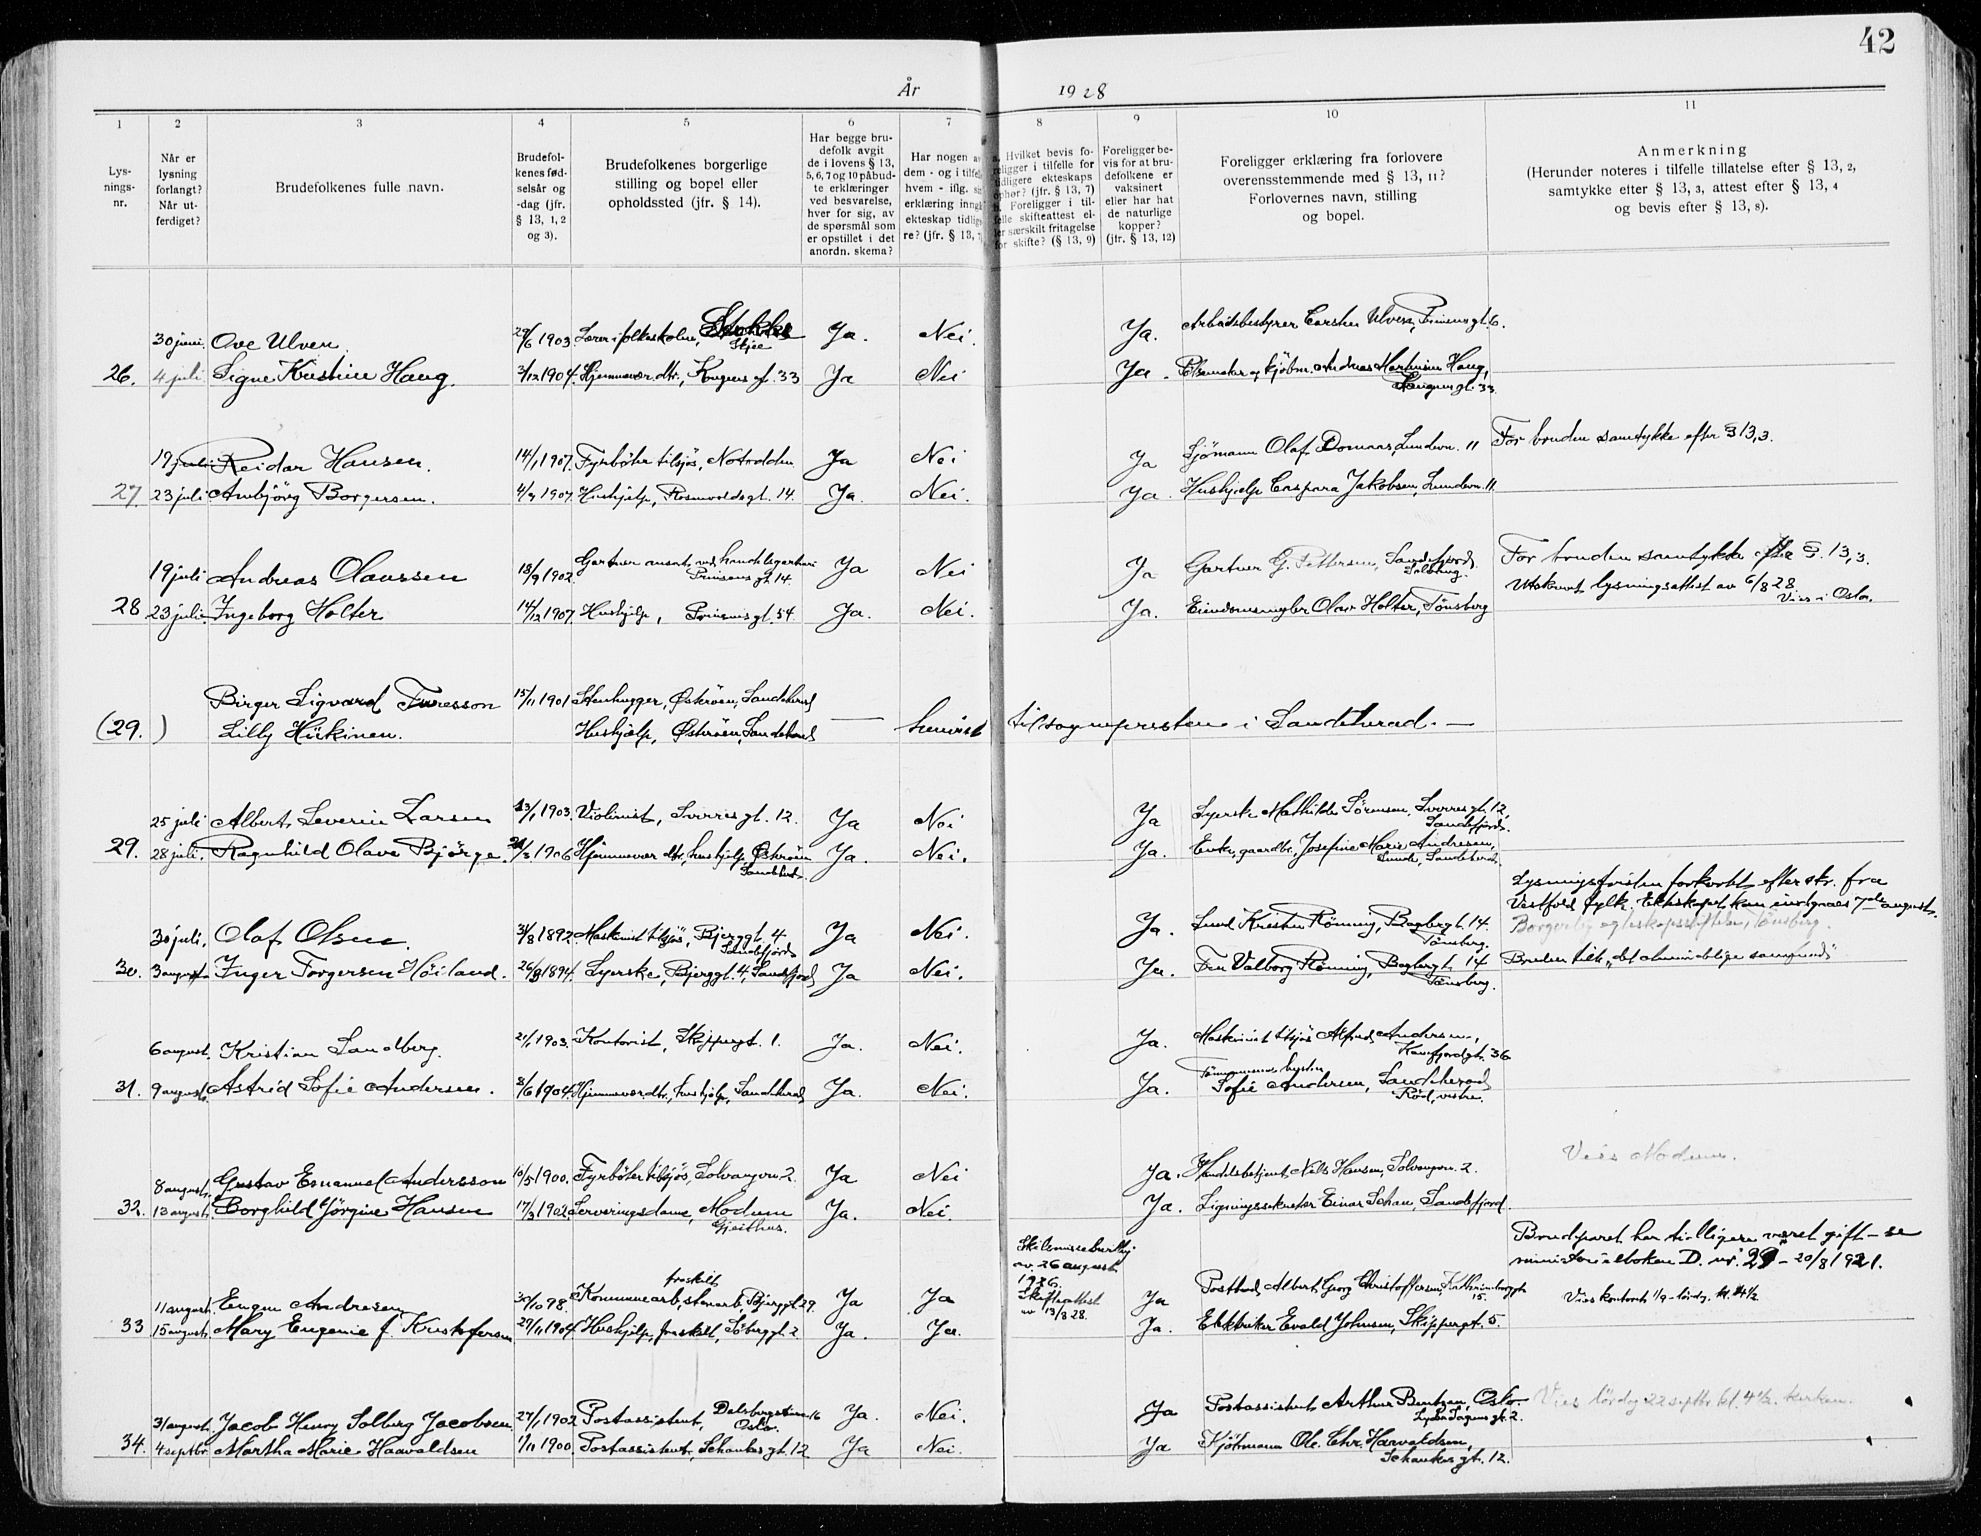 42
År 1928
1 2 3 4 5 6 7 8 9 10 11
Lys-
nings-
nr.
Når er
lysning
forlangt?
Når ut-
ferdiget?
Brudefolkenes fulle navn.
Brudefol-
kenes fød-
selsår og
-dag (jfr.
§ 13, 1, 2
og 3).
Brudefolkenes borgerlige
stilling og bopel eller
opholdssted (jfr. § 14).
Har begge bru-
defolk avgit
de i lovens § 13,
5, 6, 7 og 10 påbud-
te erklæringer
ved besvarelse,
hver for sig, av
de spørsmål som
er opstillet i det
anordn. skema?
Har nogen av
dem - og i tilfelle
hvem - iflg. sin
erklæring inngå
ekteskap tidlig
re? (jfr. § 13, 7
a. Hvilket bevis fo-
religger i tilfelle for
tidligere ekteskaps
ophør? (jfr. § 13, 7)
b. Foreligger i til-
felle skifteattest el-
ler særskilt fritagelse
for skifte? (§ 13, 9)
Foreligger be-
vis for at bru-
defolkene er
vaksinert
eller har hat
de naturlige
kopper?
(jfr. § 13, 12)
Foreligger erklæring fra forlovere
overensstemmende med § 13, 11?
Forlovernes navn, stilling
og bopel.
Anmerkning
(Herunder noteres i tilfelle tillatelse efter § 13, 2,
samtykke efter § 13, 3, attest efter § 13, 4
og bevis efter § 13, 8).
30 juni. Ove Ulven. 29/6 1903 Lærer i folkeskolen, Stokke Skjee Ja. Nei. Ja. Arbeidsbestyrer Carsten Ulven, Prinsensgt. 6.
26. 4 juli Signe Kristine Haug. 3/12 1904. Hjemmevær. dtr., Kongens gt. 33 Ja Nei Ja. Pølsemaker og kjøbm. Andreas Martinius Haug,
Kongens gt. 33
19 juli Reidar Hansen. 14/1 1907. Fyrbøter tilsjøs, Notodden Ja Nei Ja Sjømann Olaf Domaas, Lundevn. 11 For bruden samtykke efter § 13,3.
27. 23 juli Anbjörg Borgersen. 4/7 1907. Hushjelp, Rosenvoldsgt. 14. Ja. Nei. Ja. Hushjelp Caspara Jakobsen, Lundevn. 11
19 juli Andreas Olaussen 18/9 1902. Gartner ansat ved handelsgartneri Prinsens gt. 14. Ja Nei Ja Gartner G. Pettersen, Sandefjord, For bruden samtykke efter § 13,3.
28 23 juli. Ingeborg Holter 14/12 1907. Hushjelp, Prinsens gt. 54 Ja. Nei. Ja. Eiendomsmegler Olav Holter, Tønsberg
Utskrevet lysningsattest av 6/8 28.
Vies i Oslo.
Birger Sigvard Turesson 15/11 1901 Stenhugger, Østerøen, Sandeherad
(29.) Lilly Hükinen. Hushjelp, Østerøen, Sandeherad — henvist til sogneprsten i Sandeherad. —
25 juli Albert Severin Larsen 23/1 1903. Violinist, Sverres gt. 12. Ja Nei Ja Syerske Mathilde Sørensen, Sverres gt. 12,
Sandefjord.
29. 28 juli. Ragnhild Olava Bjørge. 1906 Hjemmevær. dtr., hushjelp, Østerøen Sandeherad. Ja. Nei. Ja. Enke, gaardbr., Josefine Marie Andresen,
Lunde, Sandeherad.
Lysningsfristen forkortet efter skr. fra
Vestfold fylk. Ekteskapet kan inngaaes 7de august.
30 juli. Olaf Olsen. 31/8 1892. Maskinist tilsjøs, Bjerggt. 4 Sandefjord Ja Nei. Ja. Kristen Rönning, Bagler gt. 14. Tønsberg. Borgerlig egteskapsstiftelse, Tønsberg.
30. 3 august Inger Torgersen Höiland. 26/9 1894. Syerske, Bjerggt. 4, Sandefjord Ja Nei. Ja. Fru Valborg Rönning, Bagler gt. 14 Tønsberg. Bruden tilh. „det almindelige samfund"
6 august. Kristian Sandberg. 21/1 1903. Kontorist, Skippergt. 1. Ja. Nei. Ja. Maskinist tilsjøs Alfred Andersen,
Kamfjordgt. 36
31. 9 august. Astrid Sofie Andersen. 8/6 1904. Hjemmevær. dtr., hushjelp, Sandeherad Ja. Nei. Ja. Tømmermanns hustru Sofie Andersen, Sandeherad
Rød, vestre.
8 august. Gustav Emanuel Andersson 10/5 1900. Fyrbøter tilsjøs, Solvangvn. 2 Ja Nei Ja. Handelsbetjent Nils Hansen, Solvangvn. 2. Vies Modum.
32. 13 august. Borghild Jörgine Hansen 17/3 1902. Serveringsdame, Modum Gjeithus. Ja. Nei. Ja. Ligningssekretær Einar Schau, Sandefjord.
Skilsmissebevilling
av 26 august
1926.
Skifteattest
av 13/8 28.
Brudparet har tidligere været gift – se
ministerialboken D. nr. 29 – 20/8 1921.
11 august. Eugen Andresen 30/10 98. Kommunearb., stenarb., fraskilt Bjerggt. 29. Ja Ja Ja Postbud Albert Georg Christoffersen, 15. Vies kontoret 1/9 - lördag. kl. 4½
33 15 august. Mary Eugenie f. Kristofersen 29/11 1904 Hushjelp, fraskilt, Søberggt. 2 Ja. Ja. Ja. Elektriker Evald Johnsen, Skippergt. 5
31 august. Jacob Henry Solberg Jacobsen 27/1 1902 Postassistent, Dalsbergstien 16 Oslo. Ja. Nei. Ja Postassistent Arthur Bentzen, Oslo. Lyder Sagens gt. 2. Vies lördag 22 septbr. kl. 4½ kirken.
34. 4 septbr. Martha Marie Haavaldsen 1/11 1900. Postassistent, Schankes gt. 12 Ja Nei. Ja Kjøbmann Ole Chr. Haavaldsen,
Schankes gt. 12.